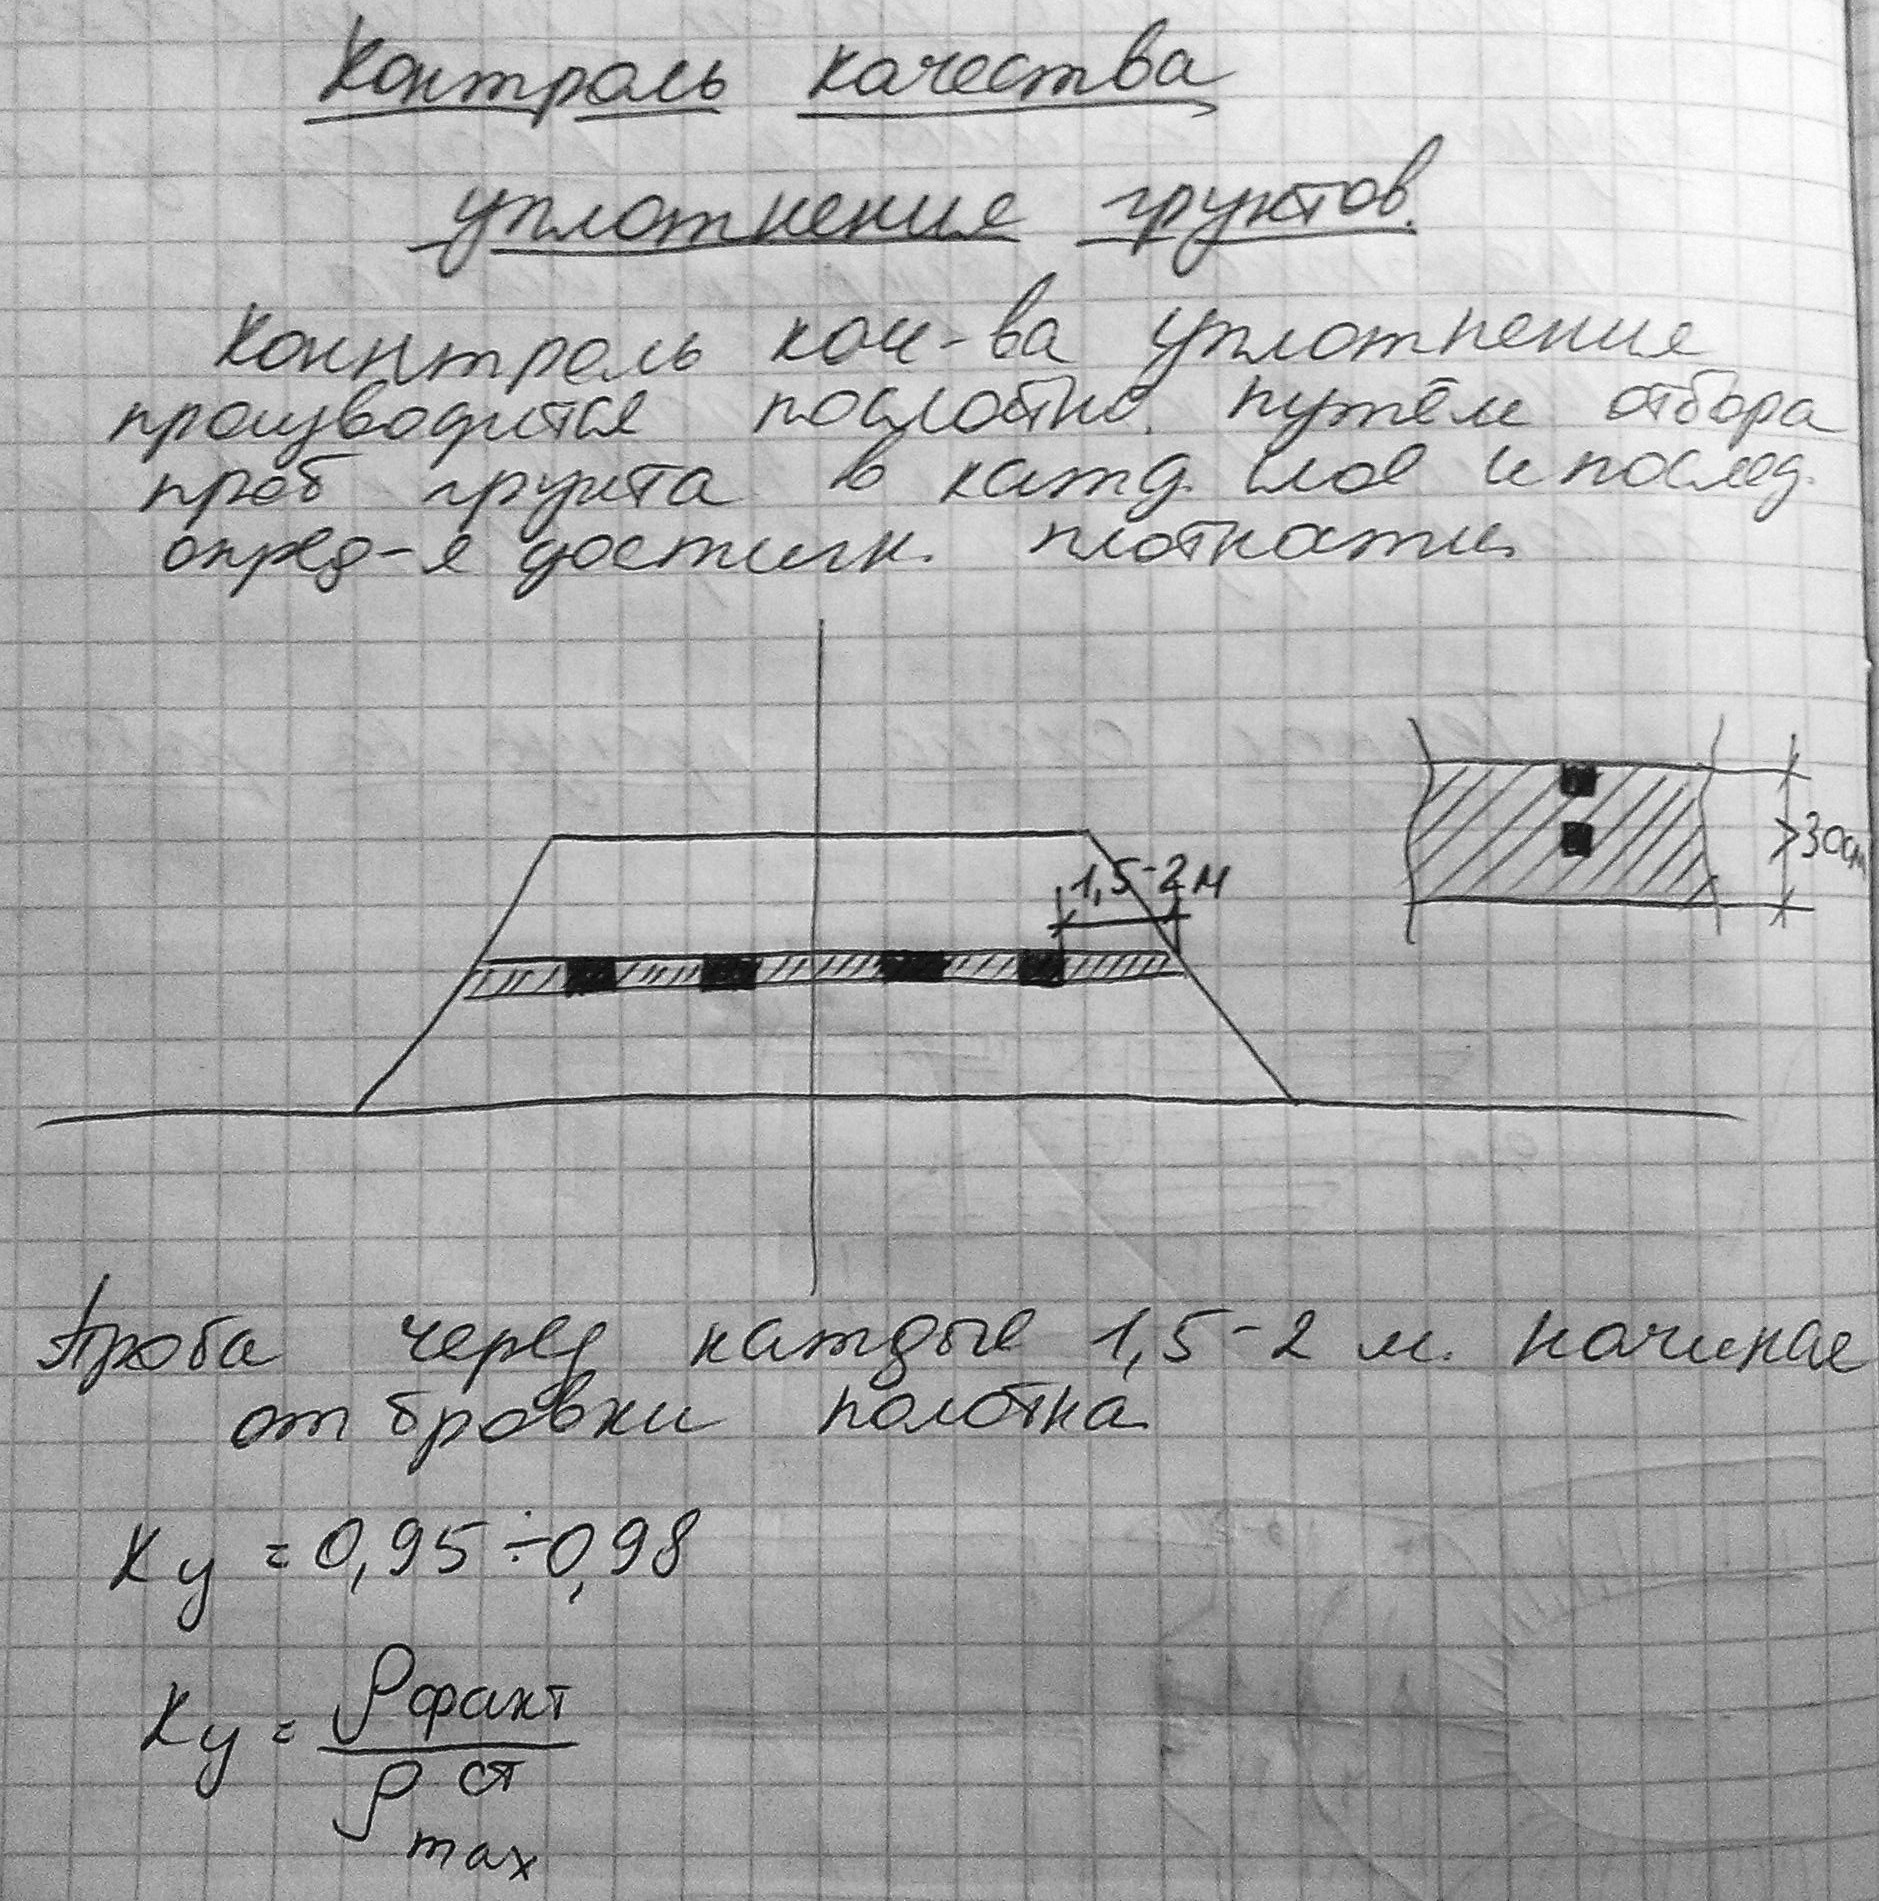 Контроль качества
уплотнения грунтов.
Контроль кач-ва уплотнения
производится послойно. путём отбора
проб грунта в кажд. слое и послед.
опред-я достигн. плотности
1,5-2м
>30см
Проба через каждые 1,5-2 м. начиная
от бровки полотна
Ку = 0,95÷0,98
Ку = ρфакт
ρ ст
max